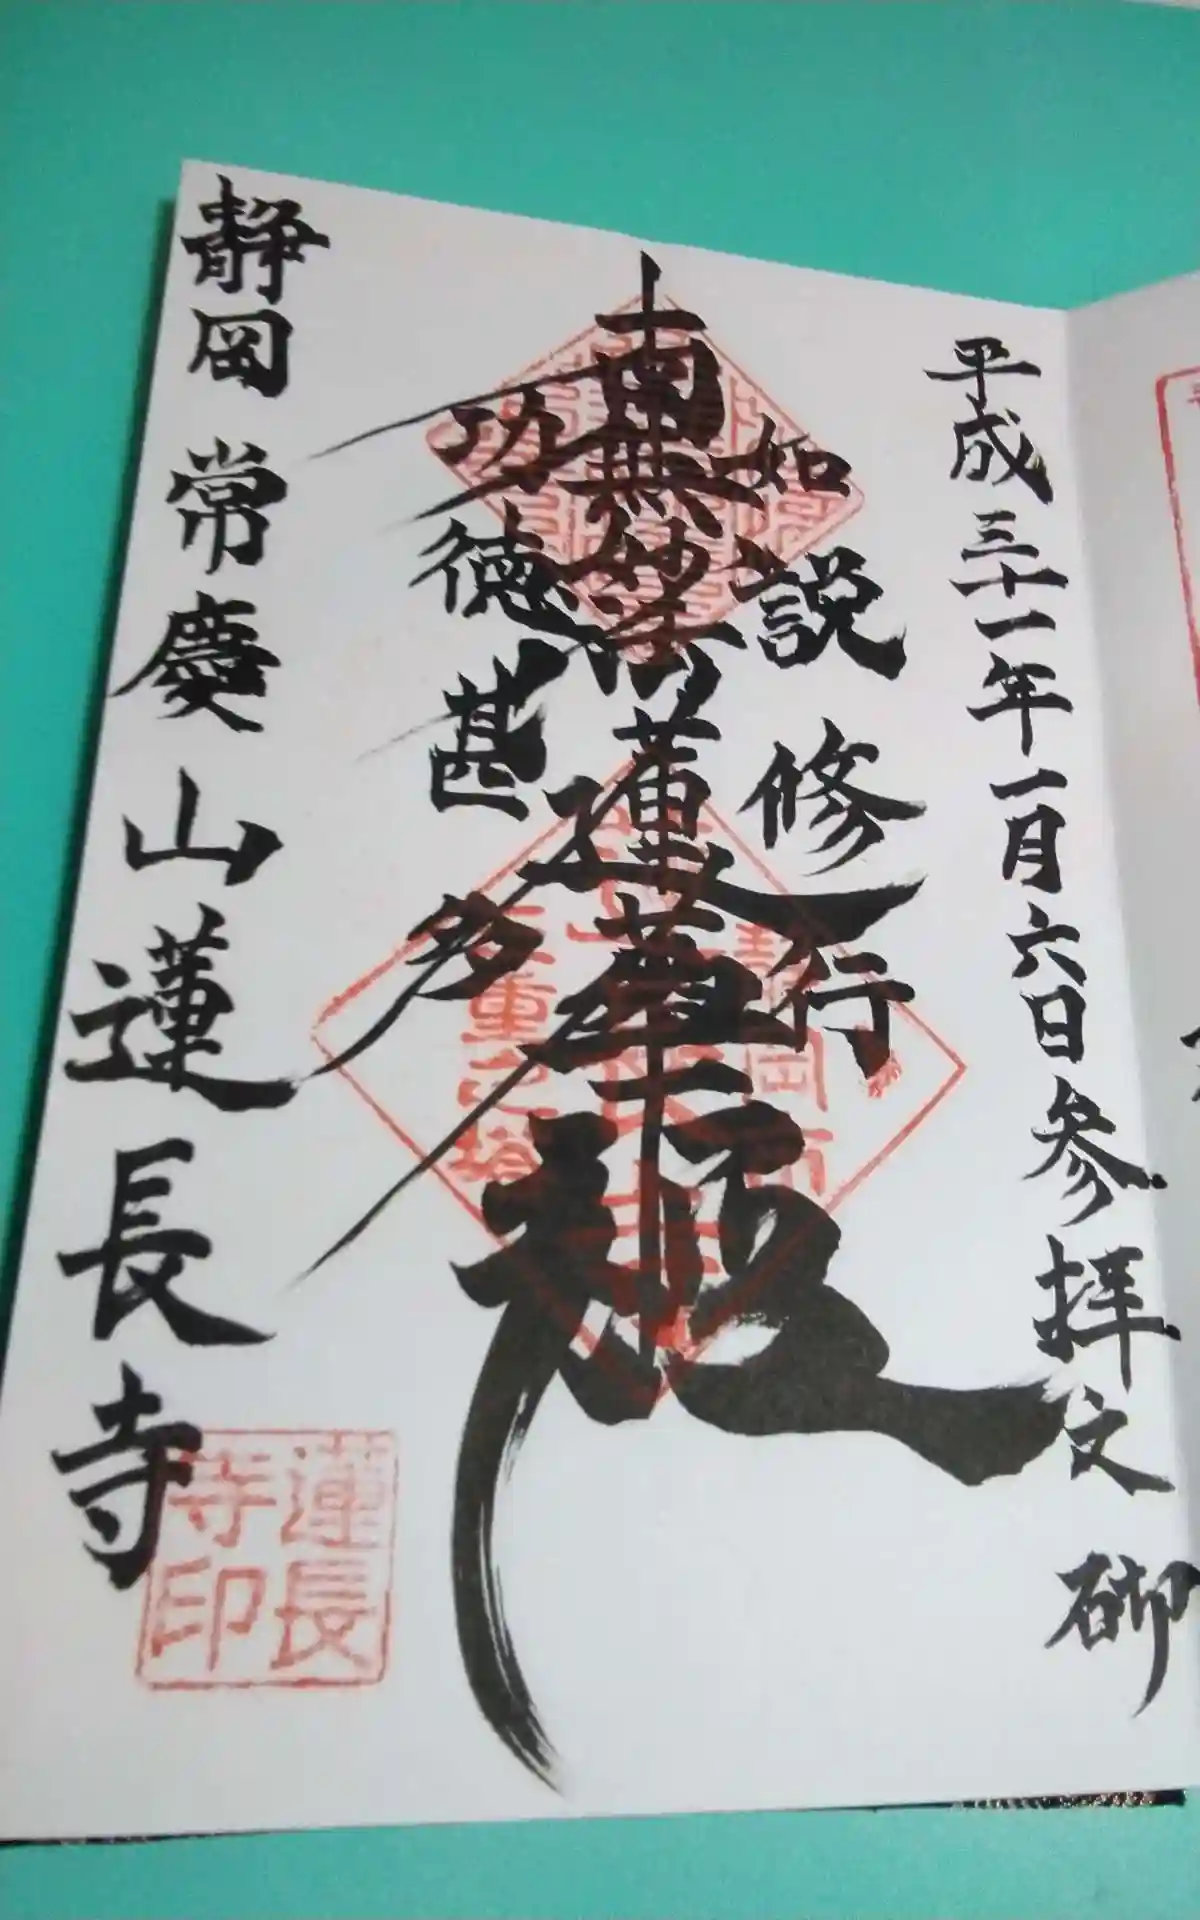 平成三十一年一月六日参拝之砌
如説修行
南無妙法蓮華経
功徳甚多
静岡 常慶山蓮長寺
静岡市
五重之塔
蓮長寺印